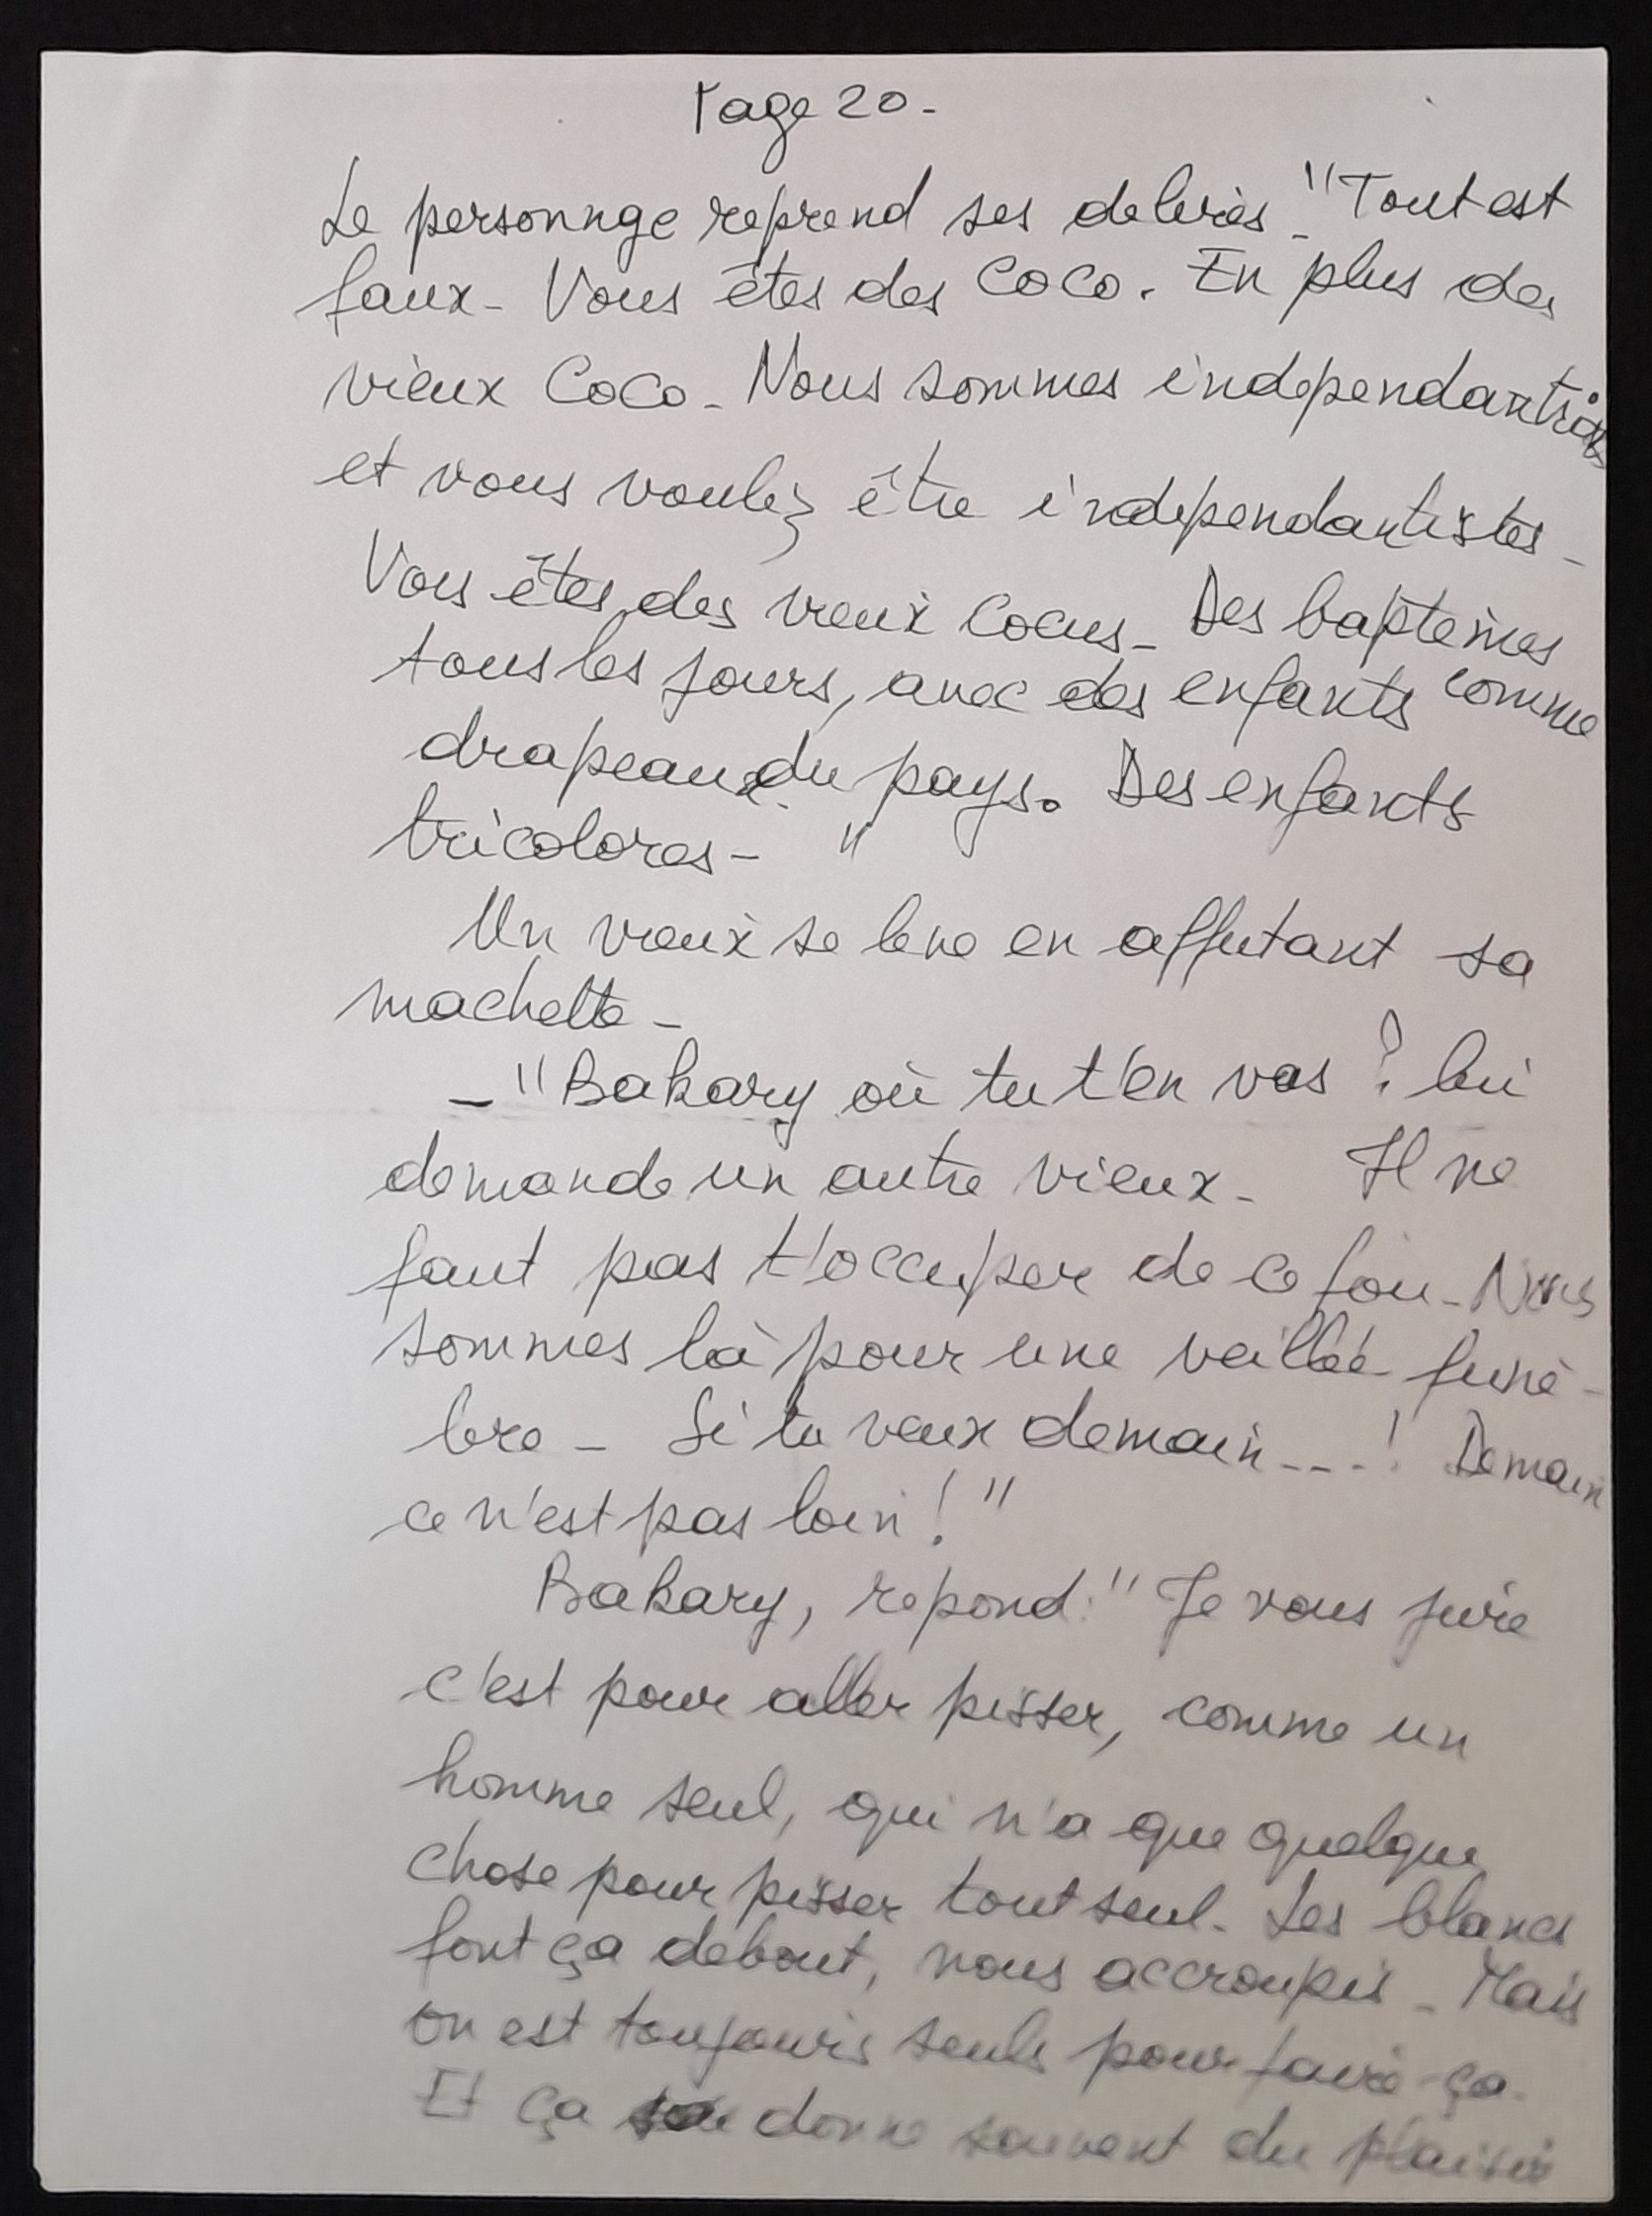 Page 20-
Le personnge reprend ses delires - "Tout est
faux - Vous êtes des Coco. En plus des
vieux Coco - Nous sommes independantistes
et vous voulez être independantistes -
Vous êtes des vieux Cocus - Des baptemes
tous les jours, avec des enfants comme
drapeaux du pays. Des enfants
tricolores - "
Un vieux se leve en affutant sa
machette -
- "Bakary où tu t'en vas ? lui
demande un autre vieux - Il ne
faut pas t'occuper de ce fou - Nous
sommes là pour une veillée funè-
bre - Si tu veux demain ---! Demain
ce n'est pas loin ! "
Bakary, repond : " Je vous jure
c'est pour aller pisser, comme un
homme seul, qui n'a que quelque
chose pour pisser tout seul - Les blancs
font ça debout, nous accroupis - Mais
on est toujours seuls pour faire ça -
Et ça donne souvent du plaisir